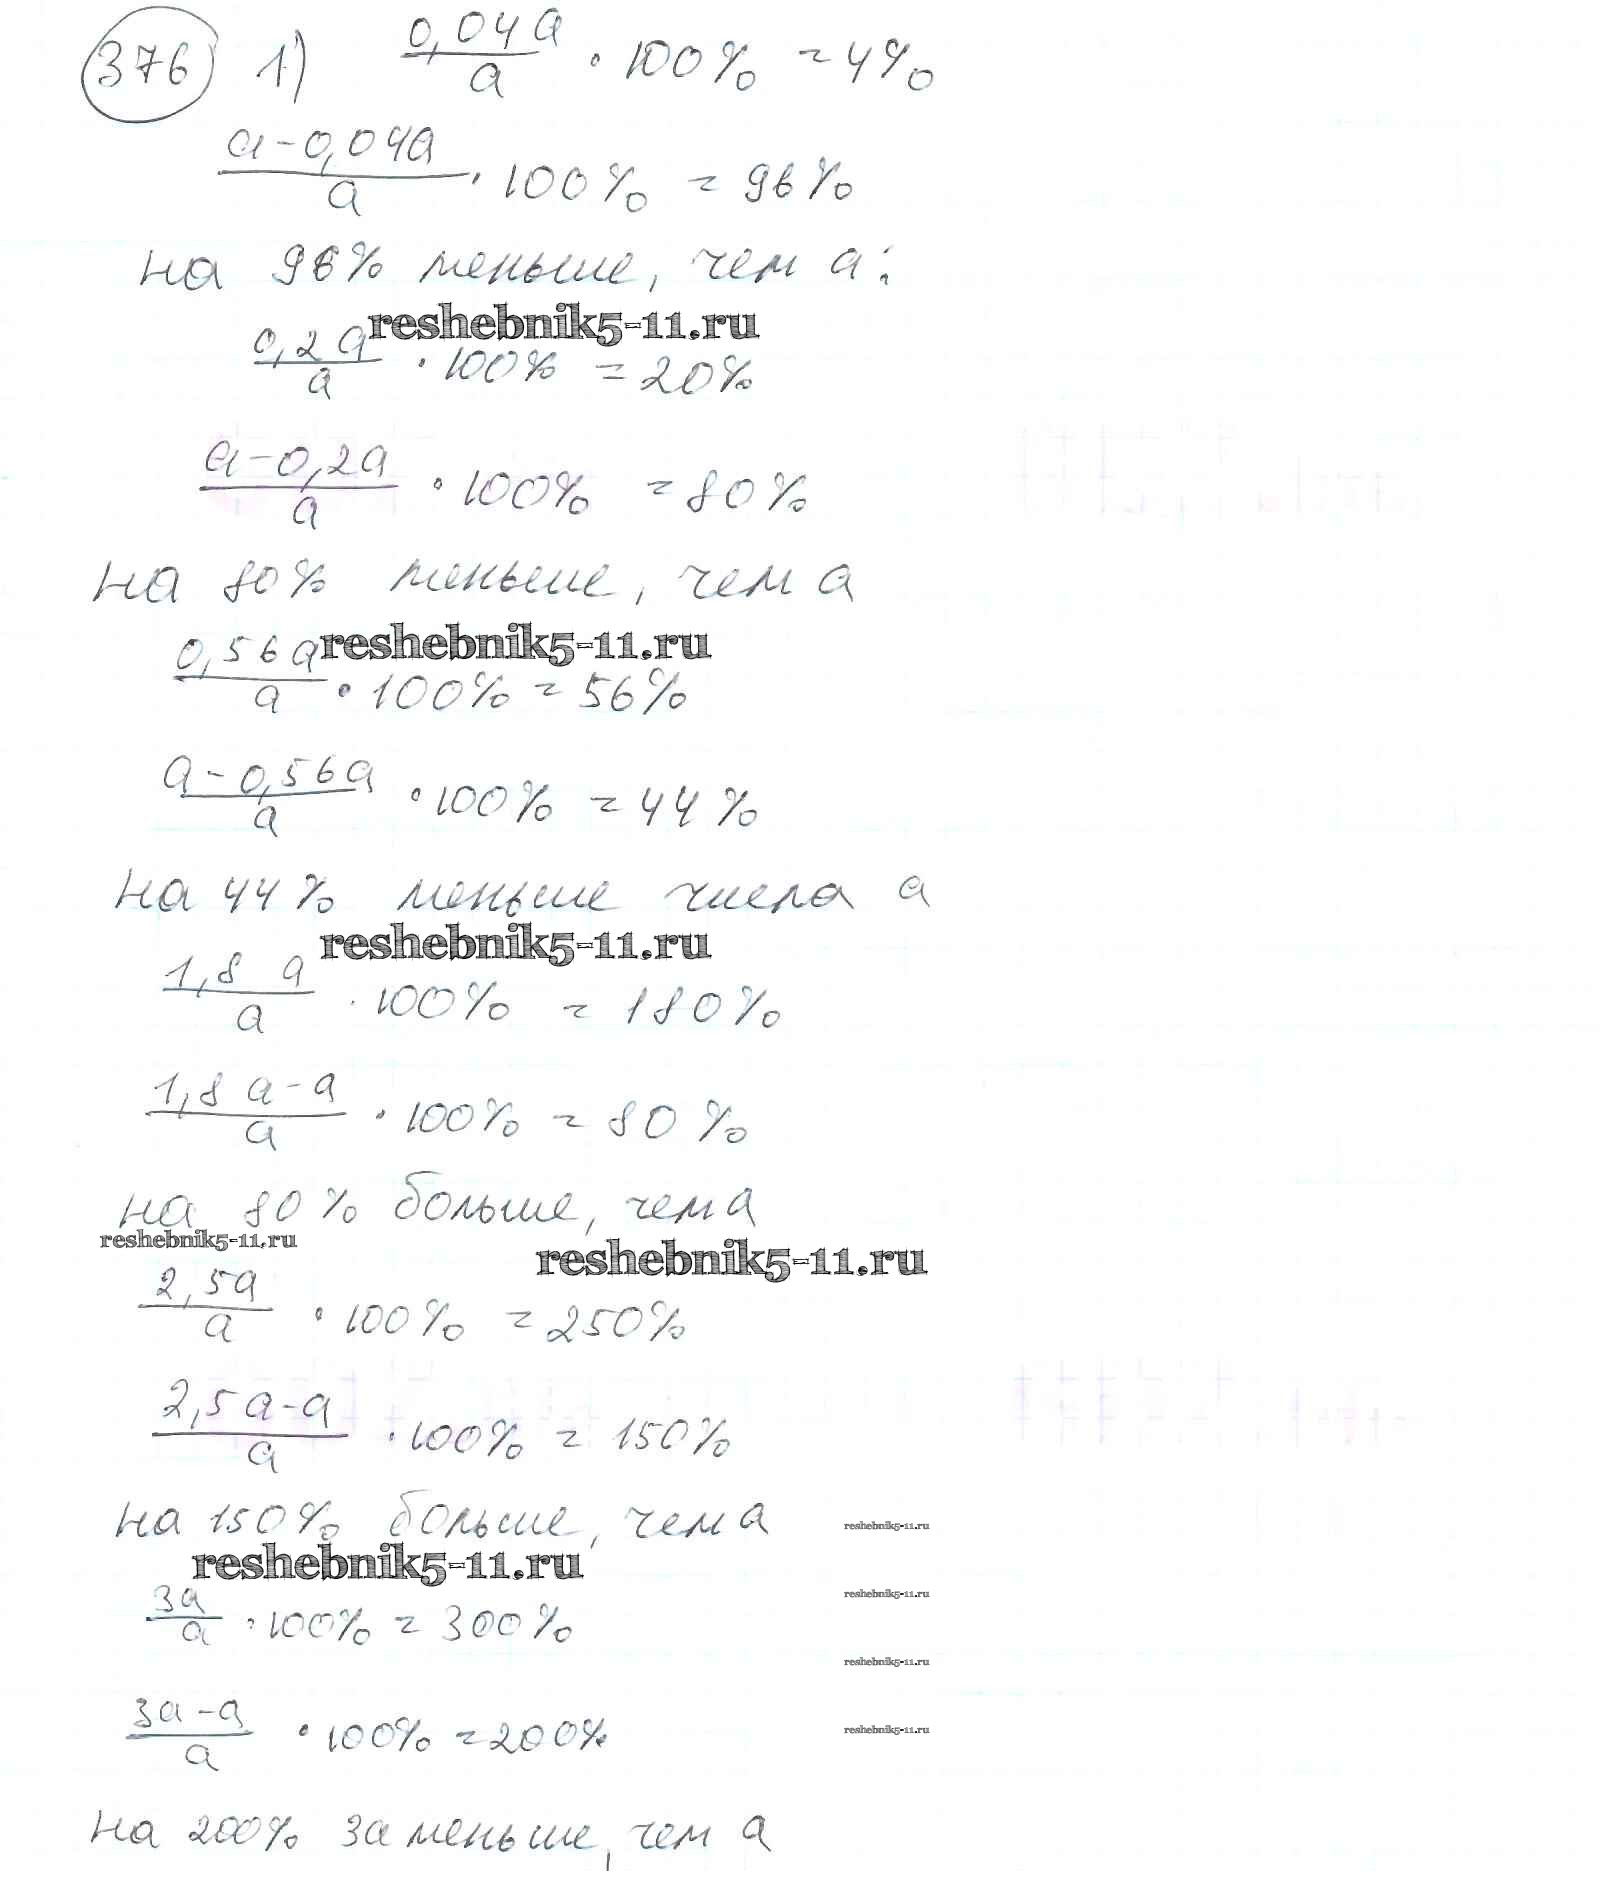 376 1) 0,04a/a · 100% = 4%
a-0,04a/a · 100% = 96%
на 96% меньше, чем a:
reshebnik5-11.ru
0,2a/a · 100% = 20%
a-0,2a/a · 100% = 80%
на 80% меньше, чем a
reshebnik5-11.ru
0,56a/a · 100% = 56%
a-0,56a/a · 100% = 44%
на 44% меньше числа a
reshebnik5-11.ru
1,8a/a · 100% = 180%
1,8a-a/a · 100% = 80%
на 80% больше, чем a
reshebnik5-11.ru
reshebnik5-11.ru
2,5a/a · 100% = 250%
2,5a-a/a · 100% = 150%
на 150% больше, чем a
reshebnik5-11.ru
reshebnik5-11.ru
3a/a · 100% = 300%
reshebnik5-11.ru
reshebnik5-11.ru
3a-a/a · 100% = 200%
reshebnik5-11.ru
на 200% 3a меньше, чем a